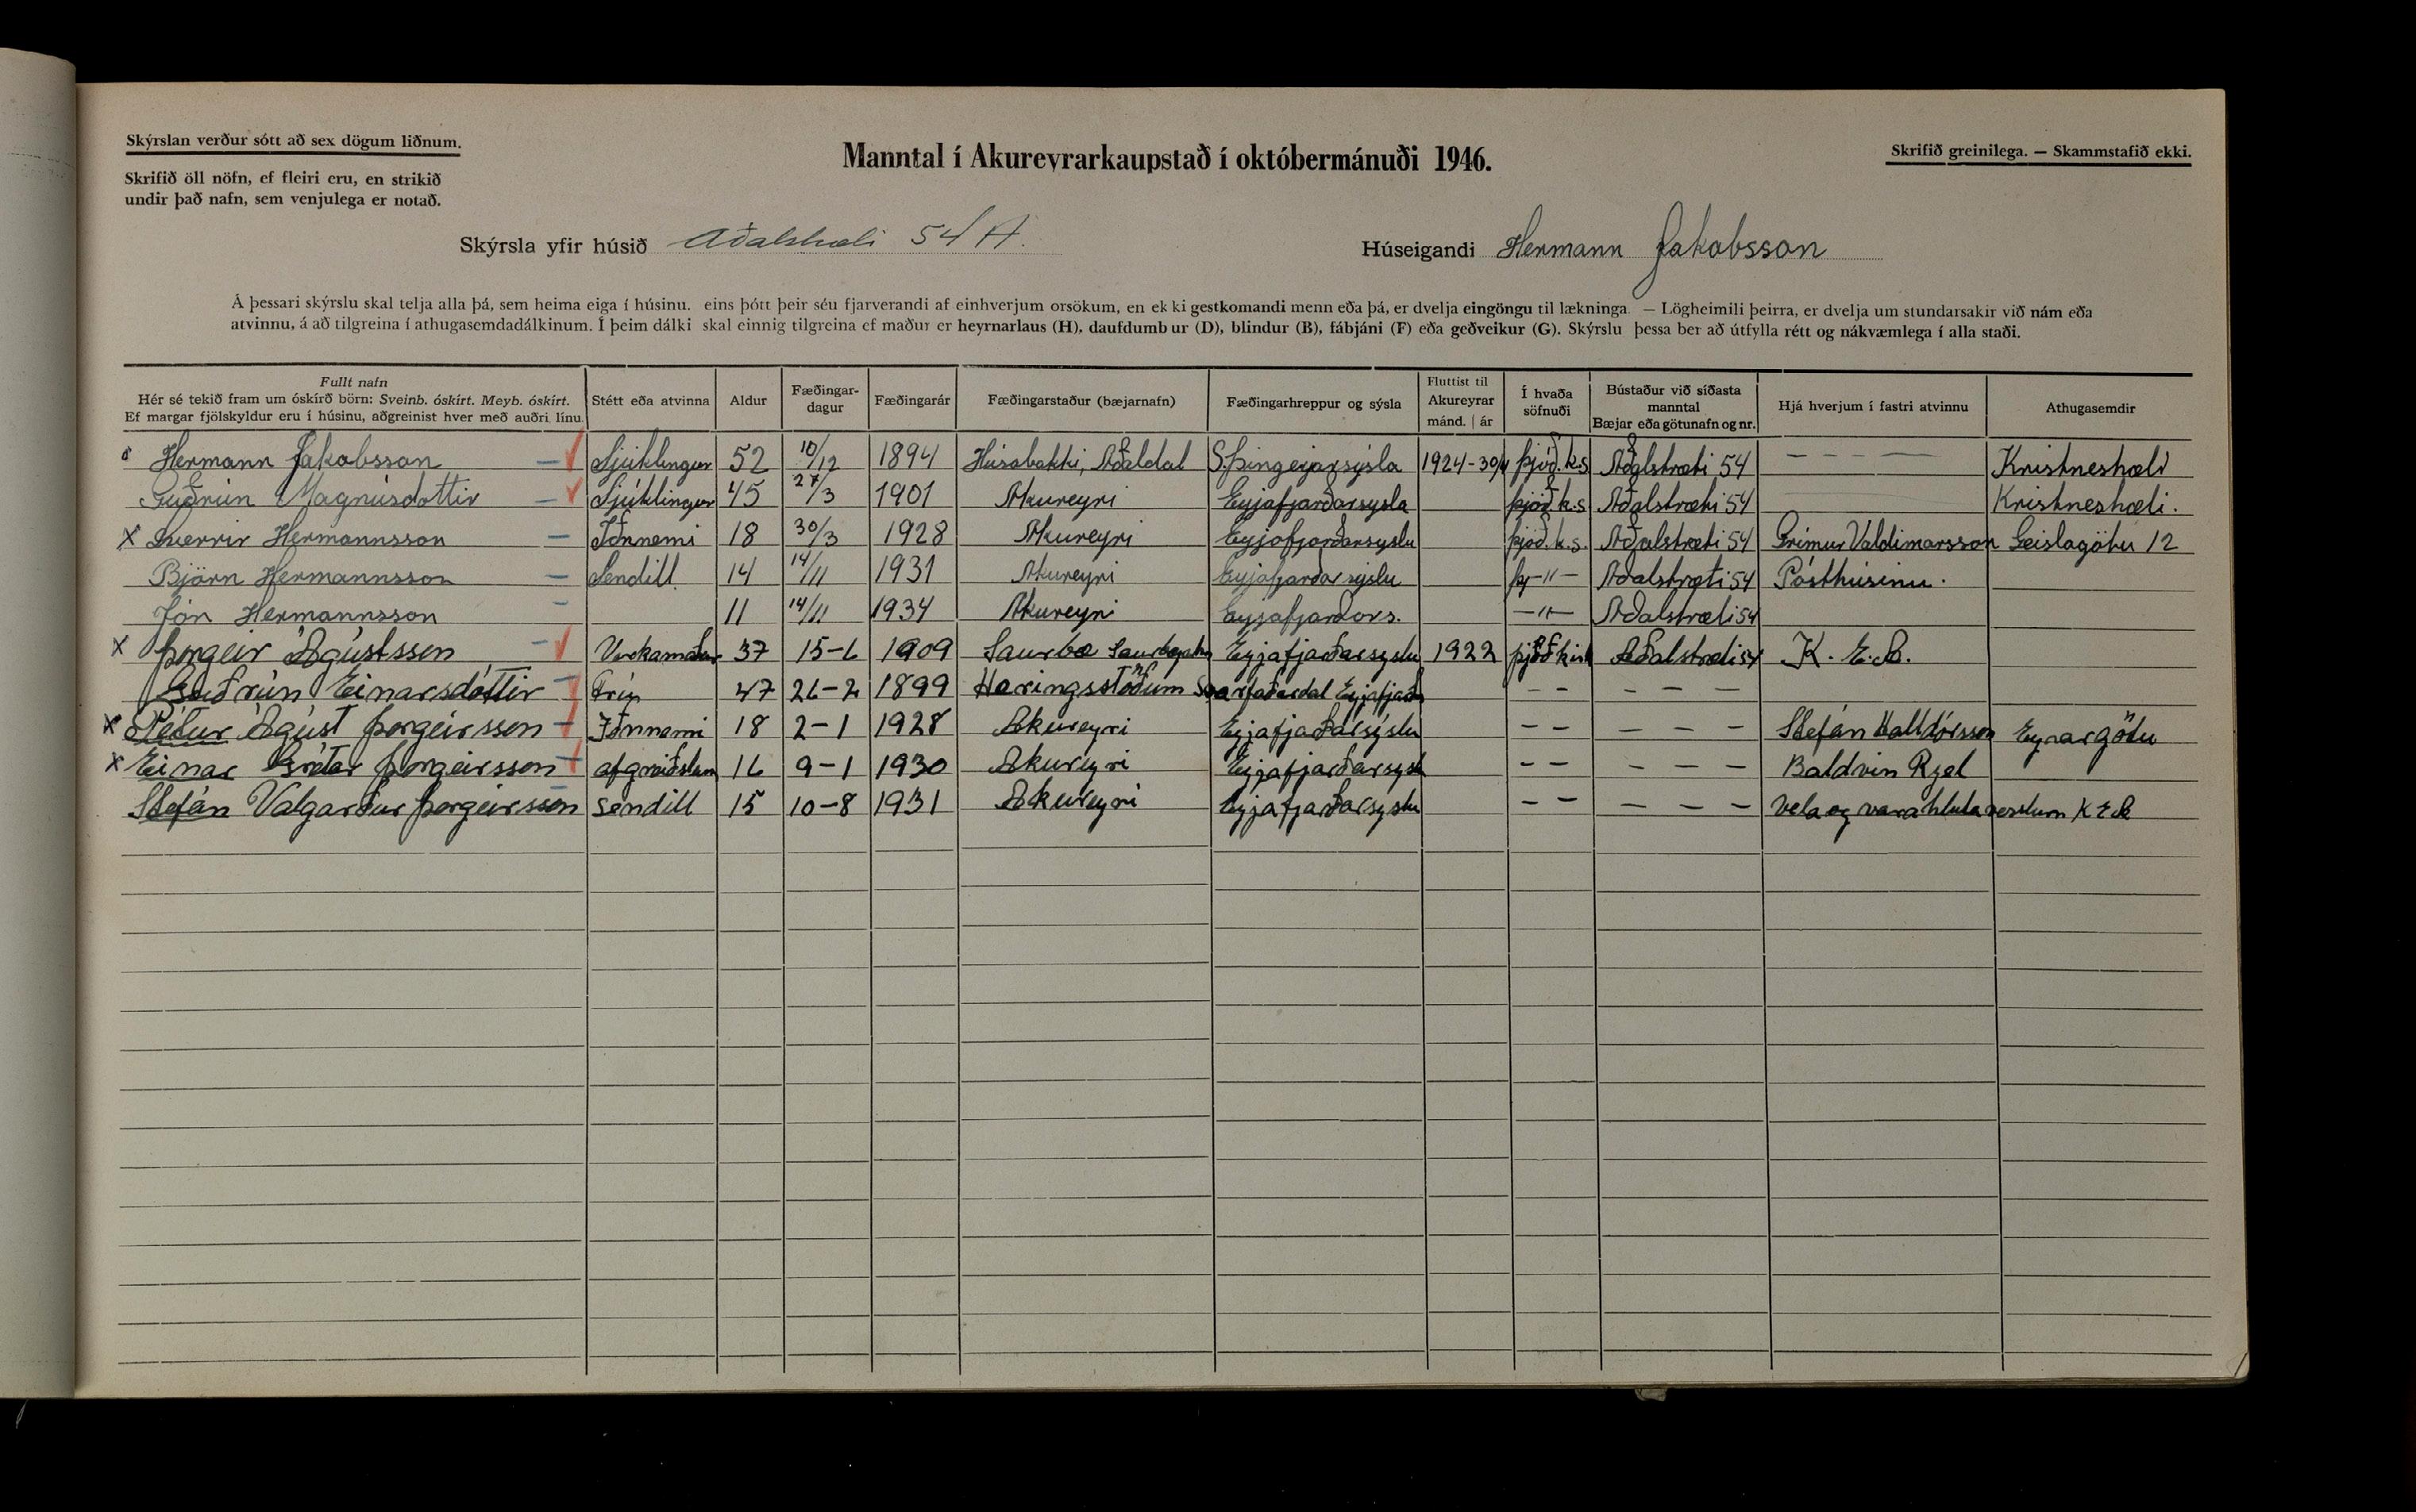 Skýrslan verður sótt að sex dögum liðnum.
Skrifið öll nöfn, ef fleiri eru, en strikið
undir það nafn, sem venjulega er notað.
Manntal í Akureyrarkaupstað í októbermánuði 1946.
Skrifið greinilega. — Skammstafið ekki.
Skýrsla yfir húsið Aðalstræti 54 A.
Húseigandi Hermann Jakobsson
Á þessari skýrslu skal telja alla þá, sem heima eiga í húsinu. eins þótt þeir séu fjarverandi af einhverjum orsökum, en ekki gestkomandi menn eða þá, er dvelja eingöngu til lækninga. — Lögheimili þeirra, er dvelja um stundarsakir við nám eða
atvinnu, á að tilgreina í athugasemdadálkinum. Í þeim dálki skal einnig tilgreina ef maður er heyrnarlaus (H), daufdumbur (D), blindur (B), fábjáni (F) eða geðveikur (G). Skýrslu þessa ber að útfylla rétt og nákvæmlega í alla staði.
Fullt nafn
Hér sé tekið fram um óskírð börn: Sveinb. óskírt. Meyb. óskírt.
Ef margar fjölskyldur eru í húsinu, aðgreinist hver með auðri línu.
Stétt eða atvinna
Aldur
Fæðingar-
dagur
Fæðingarár
Fæðingarstaður (bæjarnafn)
Fæðingarhreppur og sýsla
Fluttist til
Akureyrar
mánd. | ár
Í hvaða
söfnuði
Bústaður við síðasta
manntal
Bæjar eða götunafn og nr.
Hjá hverjum í fastri atvinnu
Athugasemdir
Hermann Jakobsson — Sjúklingur 52 10/12 1894 Húsabakki, Aðaldal S.þingeyjarsýsla 1924-30/4 þjóð.k.s Aðalstræti 54 — — — Kristneshæli
Guðrún Magnúsdóttir — Sjúklingur 45 27/3 1901 Akureyri Eyjafjarðarsýsla þjóð.k.s Aðalstræti 54 Kristneshæli.
x Sverrir Hermannsson — Iðnnemi 18 30/3 1928 Akureyri Eyjafjarðarsýslu þjóð.k.s. Aðalstræti 54 Grímur Valdimarsson Geislagötu 12
Björn Hermannsson — Sendill 14 14/11 1931 Akureyri Eyjafjarðarsýslu þj -"- Aðalstræti 54 Pósthúsinu.
Jón Hermannsson — 11 14/11 1934 Akureyri Eyjafjarðars. -"- Aðalstræti 54
x Þorgeir Ágústsson — Verkamaður 37 15-6 1909 Saurbæ Eyjafjarðarsýslu 1922 þjóðkirk Aðalstræti 54 K. E. A.
Guðrún Einarsdóttir Frú 47 26-2 1899 Hæringsstöðum Svarfaðardal Eyjafjarð — — — — —
x Pétur Ágúst Þorgeirsson — Iðnnemi 18 2-1 1928 Akureyri Eyjafjarðarsýslu — — — — — Stefán Halldórsson Eyrargötu
x Einar Grétar Þorgeirsson — afgreiðslum 16 9-1 1930 Akureyri Eyjafjarðarsýsl — — — — — Baldvin Ryel
Stefán Valgarður Þorgeirsson sendill 15 10-8 1931 Akureyri Eyjafjarðarsýslu — — — — — Véla og varahlutaverslun KEA